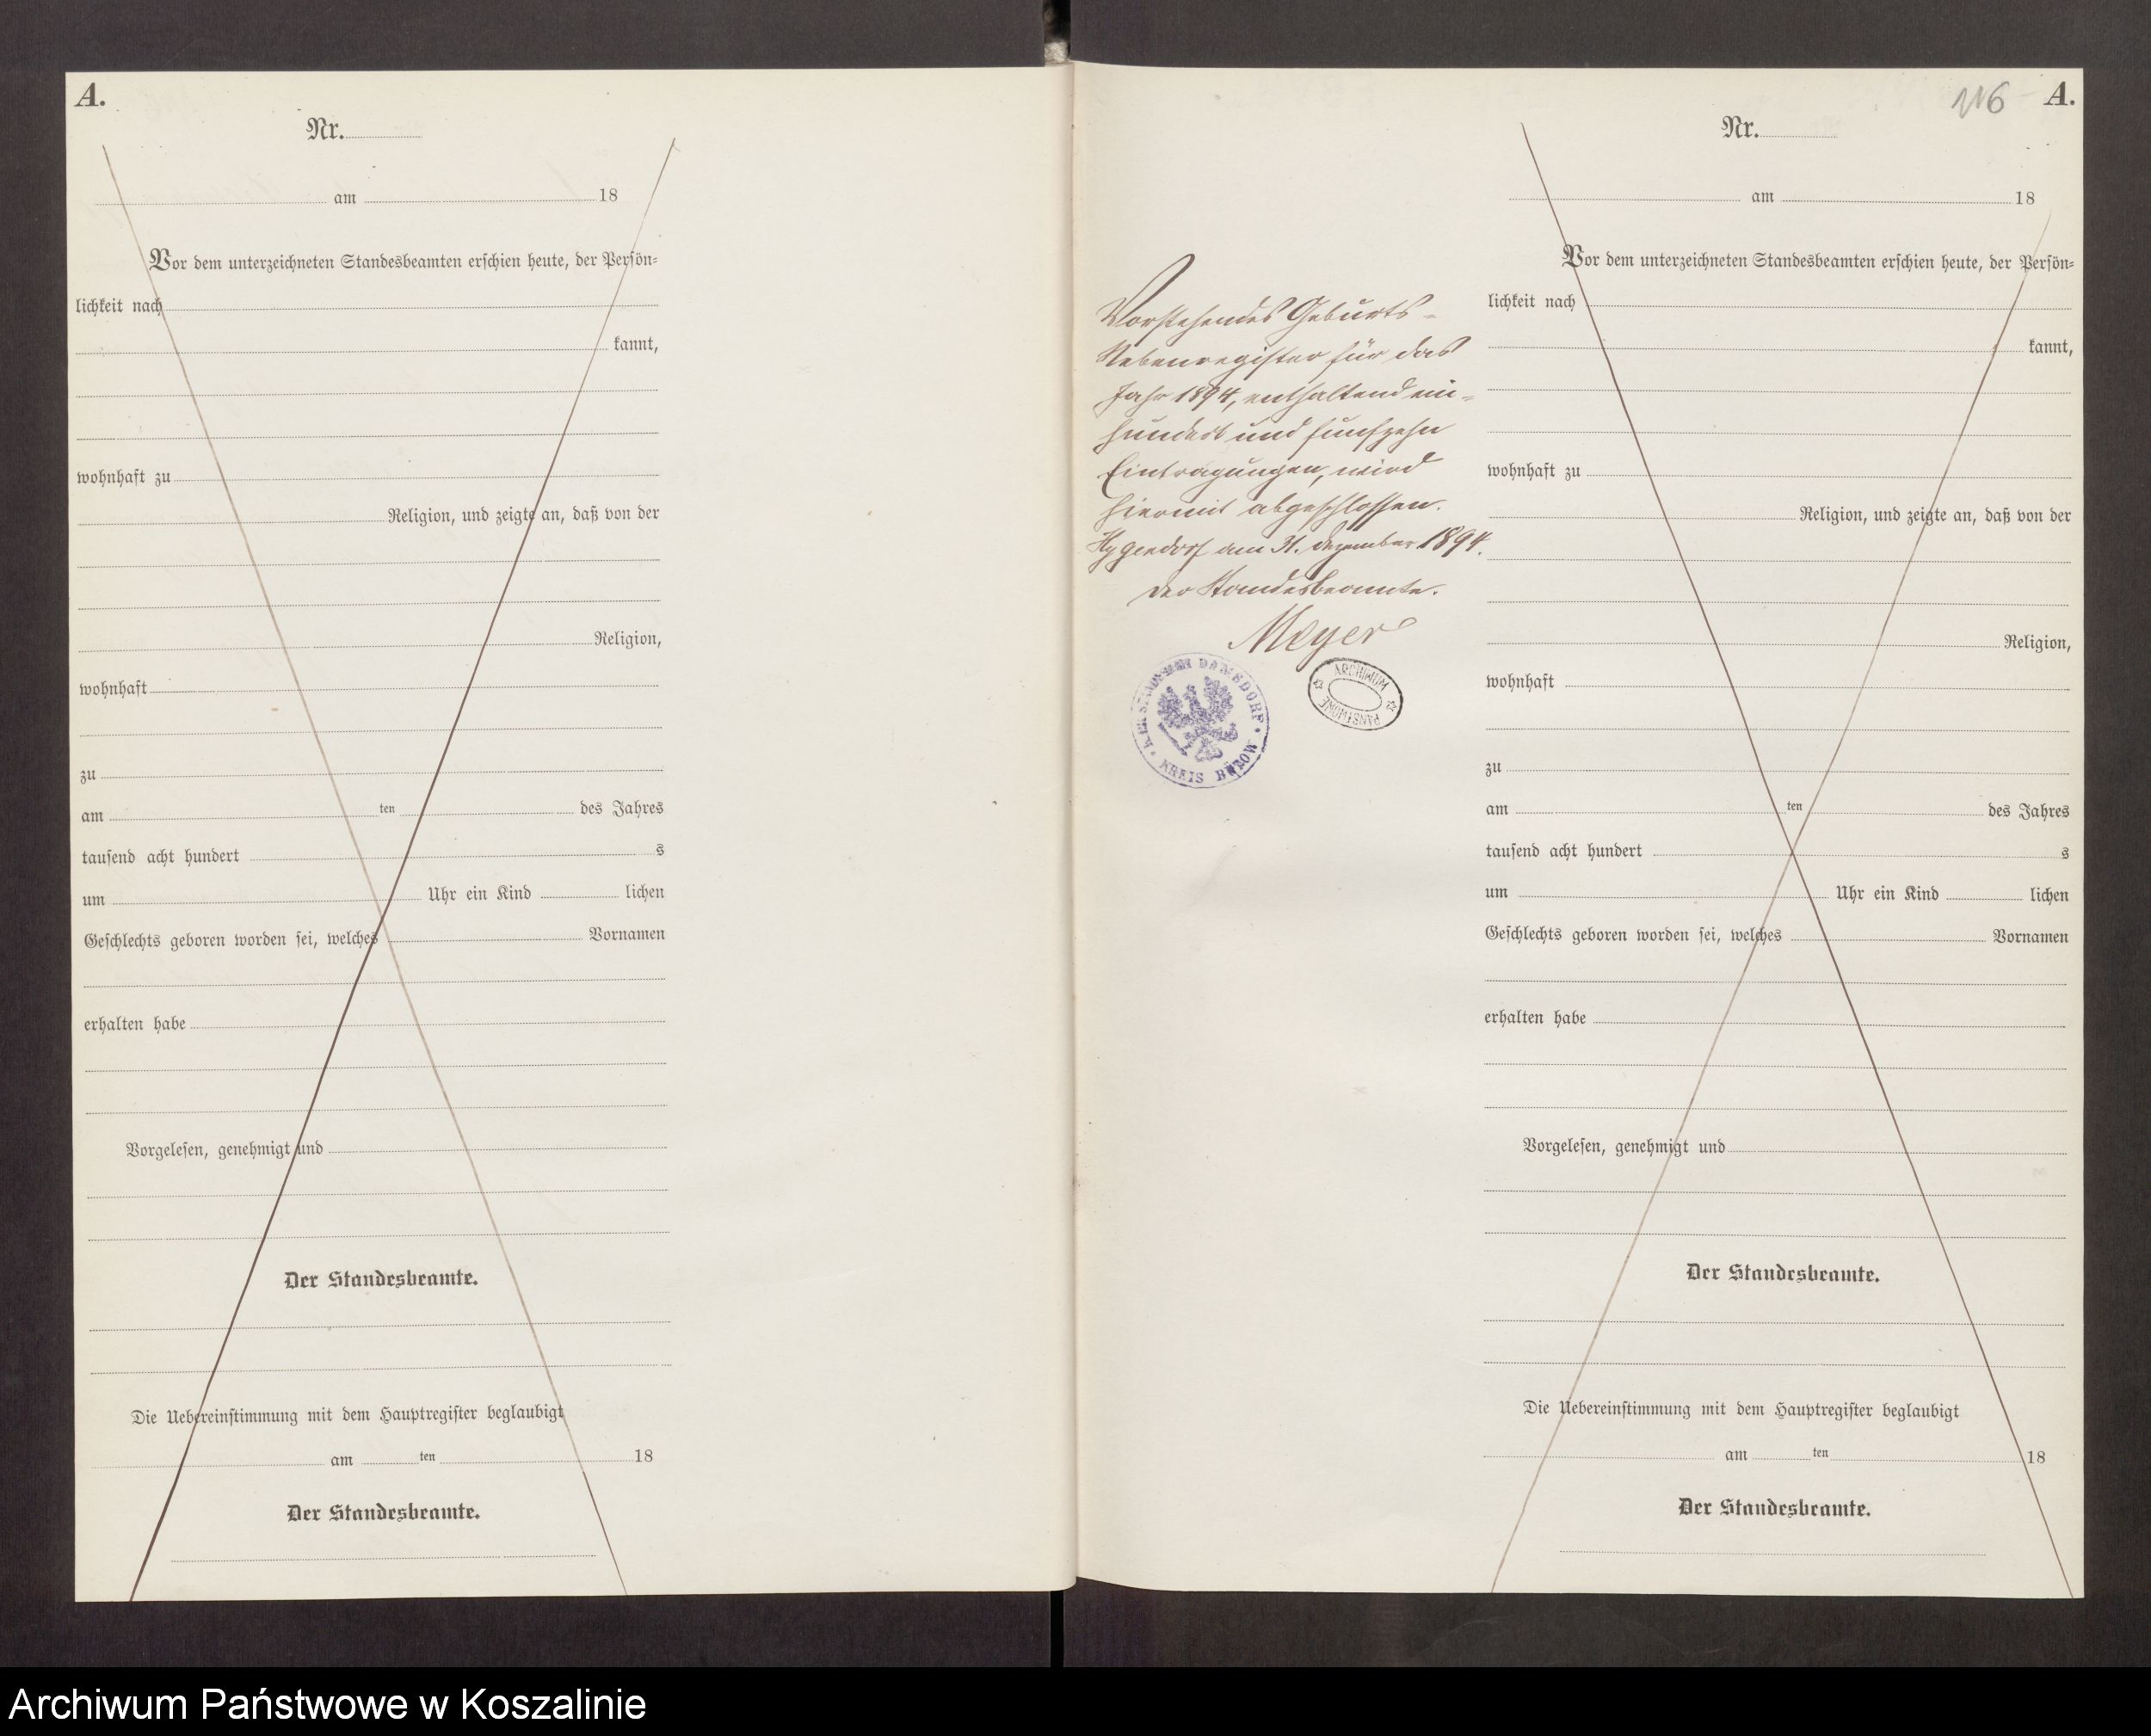 A.
Nr.
am 18
Vor dem unterzeichneten Standesbeamten erschien heute, der Persön-
lichkeit nach
kannt,
wohnhaft zu
Religion, und zeigte an, daß von der
Religion,
wohnhaft
zu
am ten des Jahres
tausend acht hundert s
um Uhr ein Kind lichen
Geschlechts geboren worden sei, welches Vornamen
erhalten habe
Vorgelesen, genehmigt und
Der Standesbeamte.
Die Uebereinstimmung mit dem Hauptregister beglaubigt
am ten 18
Der Standesbeamte.
Vorstehendes Geburts-
Nebenregister für das
Jahr 1894, enthaltend ein-
hundert und fünfzehn
Eintragungen, wird
hiermit abgeschlossen.
am 31. Dezember 1894.
Der Standesbeamte.
Meyer
DAMSDORF
KREIS BÜTOW
ARCHIWUM
PAŃSTWOWE
116 A.
Nr.
am 18
Vor dem unterzeichneten Standesbeamten erschien heute, der Persön-
lichkeit nach
kannt,
wohnhaft zu
Religion, und zeigte an, daß von der
Religion,
wohnhaft
zu
am ten des Jahres
tausend acht hundert s
um Uhr ein Kind lichen
Geschlechts geboren worden sei, welches Vornamen
erhalten habe
Vorgelesen, genehmigt und
Der Standesbeamte.
Die Uebereinstimmung mit dem Hauptregister beglaubigt
am ten 18
Der Standesbeamte.
Archiwum Państwowe w Koszalinie